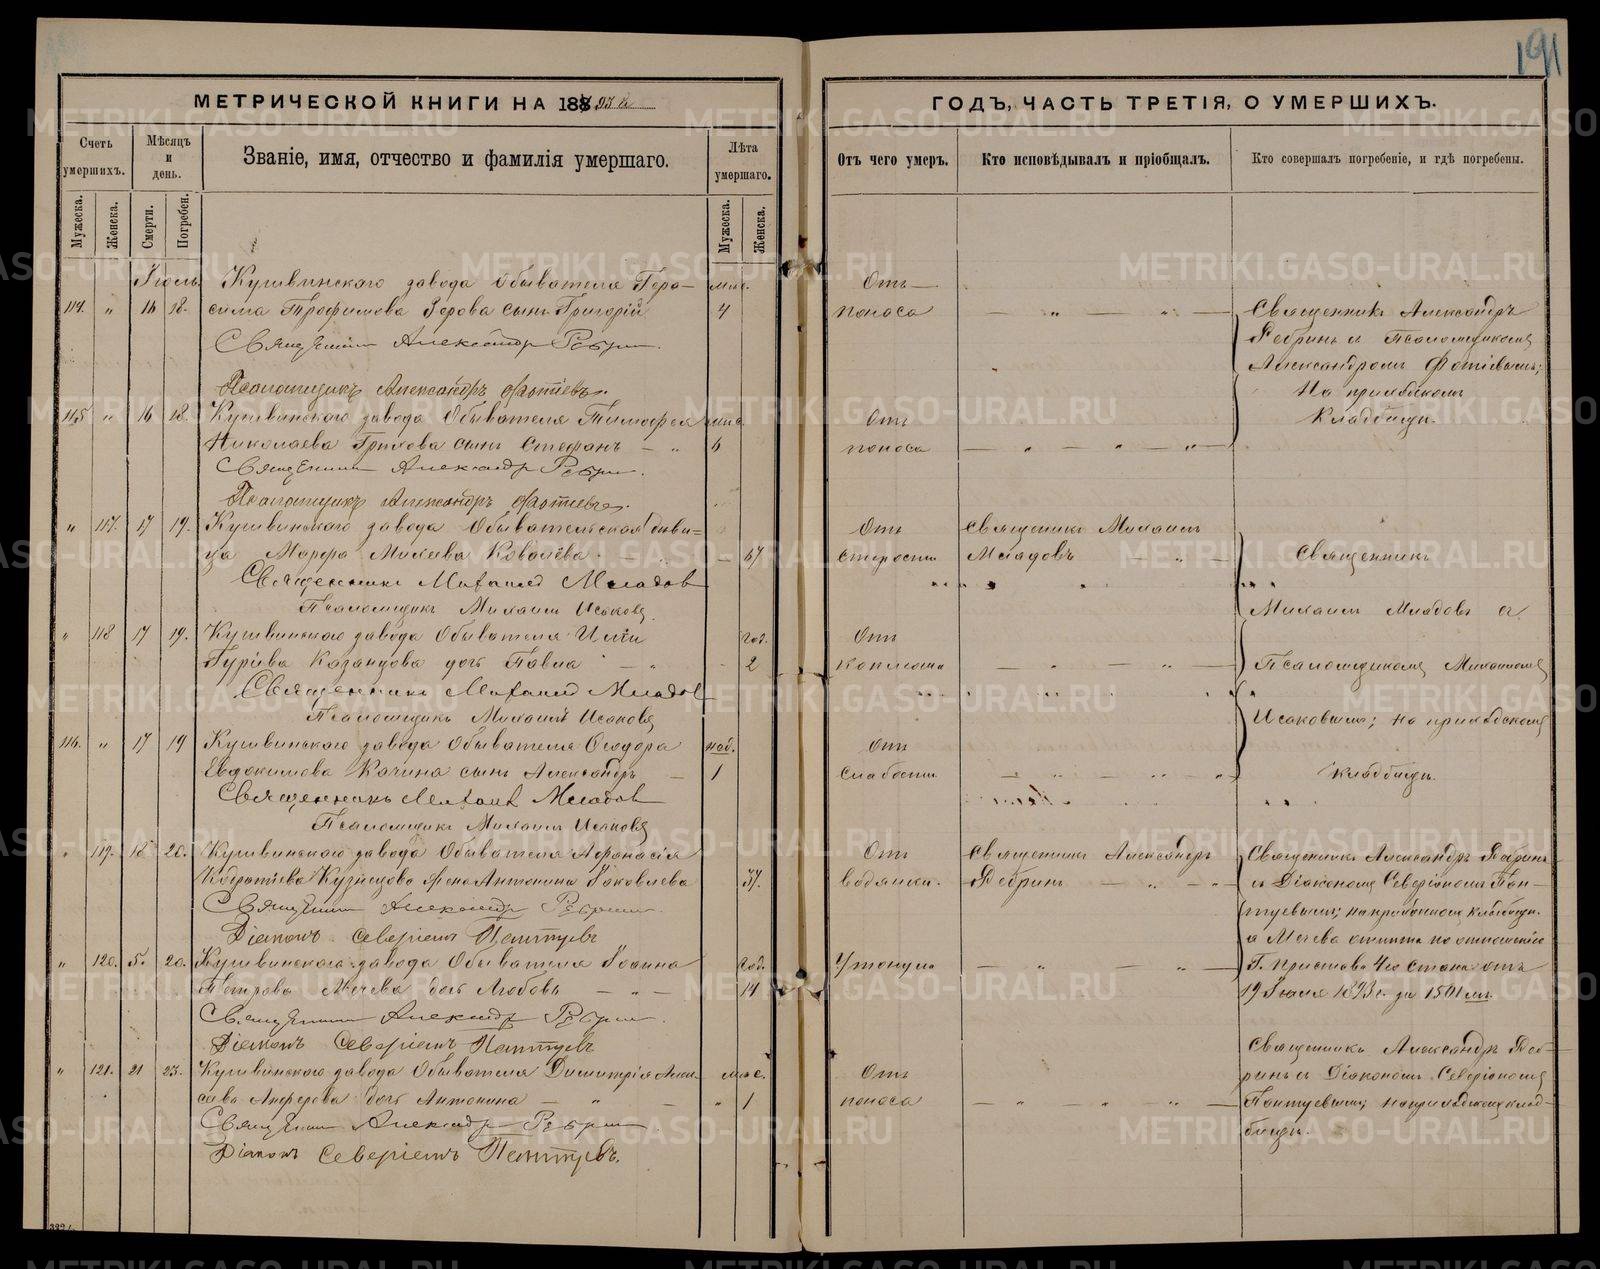 191
МЕТРИЧЕСКОЙ КНИГИ НА 1893 й
ГОДЪ, ЧАСТЬ ТРЕТІЯ, О УМЕРШИХЪ.
Счетъ умершихъ.
Мѣсяцъ и день.
Званіе, имя, отчество и фамилія умершаго.
Лѣта умершаго.
Отъ чего умеръ.
Кто исповѣдывалъ и пріобщалъ.
Кто совершалъ погребеніе, и гдѣ погребены.
Мужеска.
Женска.
Смерти.
Погребен.
Мужеска.
Женска.
Іюль. Кушвинскаго завода Обывателя Гера- мѣс. Отъ
114. „ 16 18. сима Трофимова сынъ Григорій 4 поноса — „ — „ — Священникъ Александръ
Священникъ Александръ Ребринъ
Ребринъ съ Псаломщикомъ
Александромъ Фотіевымъ;
Псаломщикъ Александръ Фотіевъ.
На приходскомъ
115 „ 16 18. Кушвинскаго завода Обывателя Тимофея мѣс. Отъ
кладбищѣ.
Николаева сынъ Стефанъ — „ 6 поноса — „ — „ — „ —
Священникъ Александръ Ребринъ
Псаломщикъ Александръ Фотіевъ.
„ 117. 17 19. Кушвинскаго завода Обывательская дѣви- Отъ Священникъ Михаилъ
ца Марфа Ковалева — 67 старости Младовъ — „ — Священникъ
Священникъ Михаилъ Младовъ
Псаломщикъ Михаилъ Исаковъ
Михаилъ Младовъ съ
„ 118 17 19. Кушвинскаго завода Обывателя Иліи год. Отъ
Гурьева дочь Павла — „ 2 — „ — „ — Псаломщикомъ Михаиломъ
Священникъ Михаилъ Младовъ
Псаломщикъ Михаилъ Исаковъ
Исаковымъ; на приходскомъ
116. „ 17 19 Кушвинскаго завода Обывателя Ѳеодора нед. Отъ
Евдокимова Качина сынъ Александръ — 1 слабости — „ — „ — „ кладбищѣ.
Священникъ Михаилъ Младовъ
Псаломщикъ Михаилъ Исаковъ
„ 119. 18 20. Кушвинскаго завода Обывателя Аѳанасія Отъ Священникъ Александръ Священникъ Александръ Ребринъ
Кузнецова жена Антонина Іаковлева 37. водянки. Ребринъ — „ — „ съ Діакономъ Северіаномъ Пан-
Священникъ Александръ Ребринъ
туевымъ; на приходскомъ кладбищѣ.
Діаконъ Северіанъ Пантуевъ
а Мячева отпѣта по отношенію
„ 120. 5. 20. Кушвинскаго завода Обывателя Іоанна год. Утонула — „ — „ — Г. Пристава 4го стана отъ
Петрова Мячева дочь Любовь — „ — 14 19 Іюля 1893 г. за № 1501
Священникъ Александръ Ребринъ
Діаконъ Северіанъ Пантуевъ
Священникъ Александръ Реб-
„ 121. 21 23. Кушвинскаго завода Обывателя Димитрія Алек- мѣс. Отъ ринъ съ Діакономъ Северіаномъ
сѣева дочь Антонина — „ — „ 1 поноса — „ „ — „ — Пантуевымъ; на приходскомъ клад-
Священникъ Александръ Ребринъ
бищѣ.
Діаконъ Северіанъ Пантуевъ.
METRIKI.GASO-URAL.RU